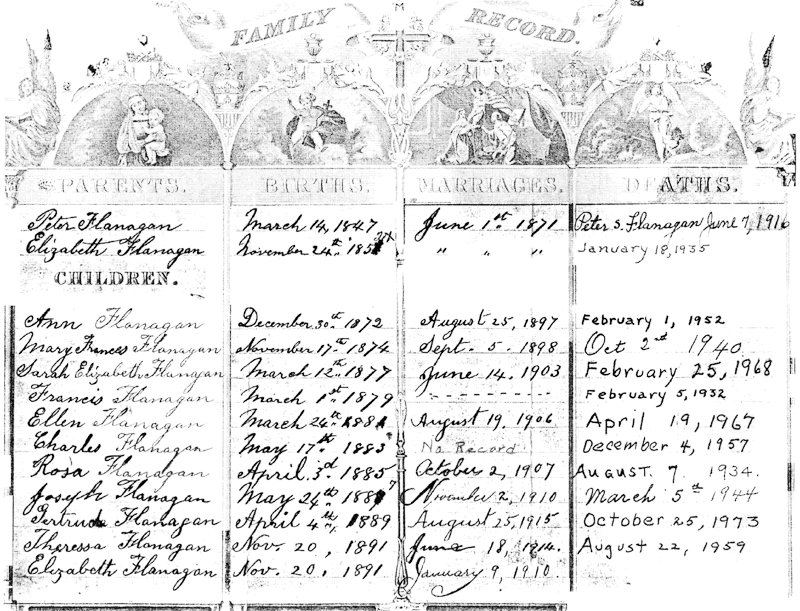 FAMILY RECORD.
PARENTS. BIRTHS. MARRIAGES. DEATHS.
Peter Flanagan March 14, 1847 June 1st 1871 Peter S. Flanagan June 7, 1916
Elizabeth Flanagan November 24th " " " January 18, 1935
CHILDREN.
Ann Flanagan December 30th 1872 August 25, 1897 February 1, 1952
Mary Frances Flanagan November 17th 1874 Sept. 5. 1898 Oct 2nd 1940
Sarah Elizabeth Flanagan March 12th 1877 June 14. 1903 February 25, 1968
Francis Flanagan March 1st 1879 - - - - - - - - - - February 5, 1932
Ellen Flanagan March 24th 1881 August 19. 1906 April 19, 1967
Charles Flanagan May 17th 1883 No Record December 4, 1957
Rosa Flanagan April. 3rd 1885 October 2, 1907 AUGUST. 7 1934.
Joseph Flanagan May 24th 1887 November 2, 1910 March 5th 1944
Gertrude Flanagan April 4th 1889 August 25, 1915 October 25, 1973
Theressa Flanagan Nov. 20, 1891 June 18, 1914. August 22, 1959
Elizabeth Flanagan Nov. 20. 1891 January 9, 1910.